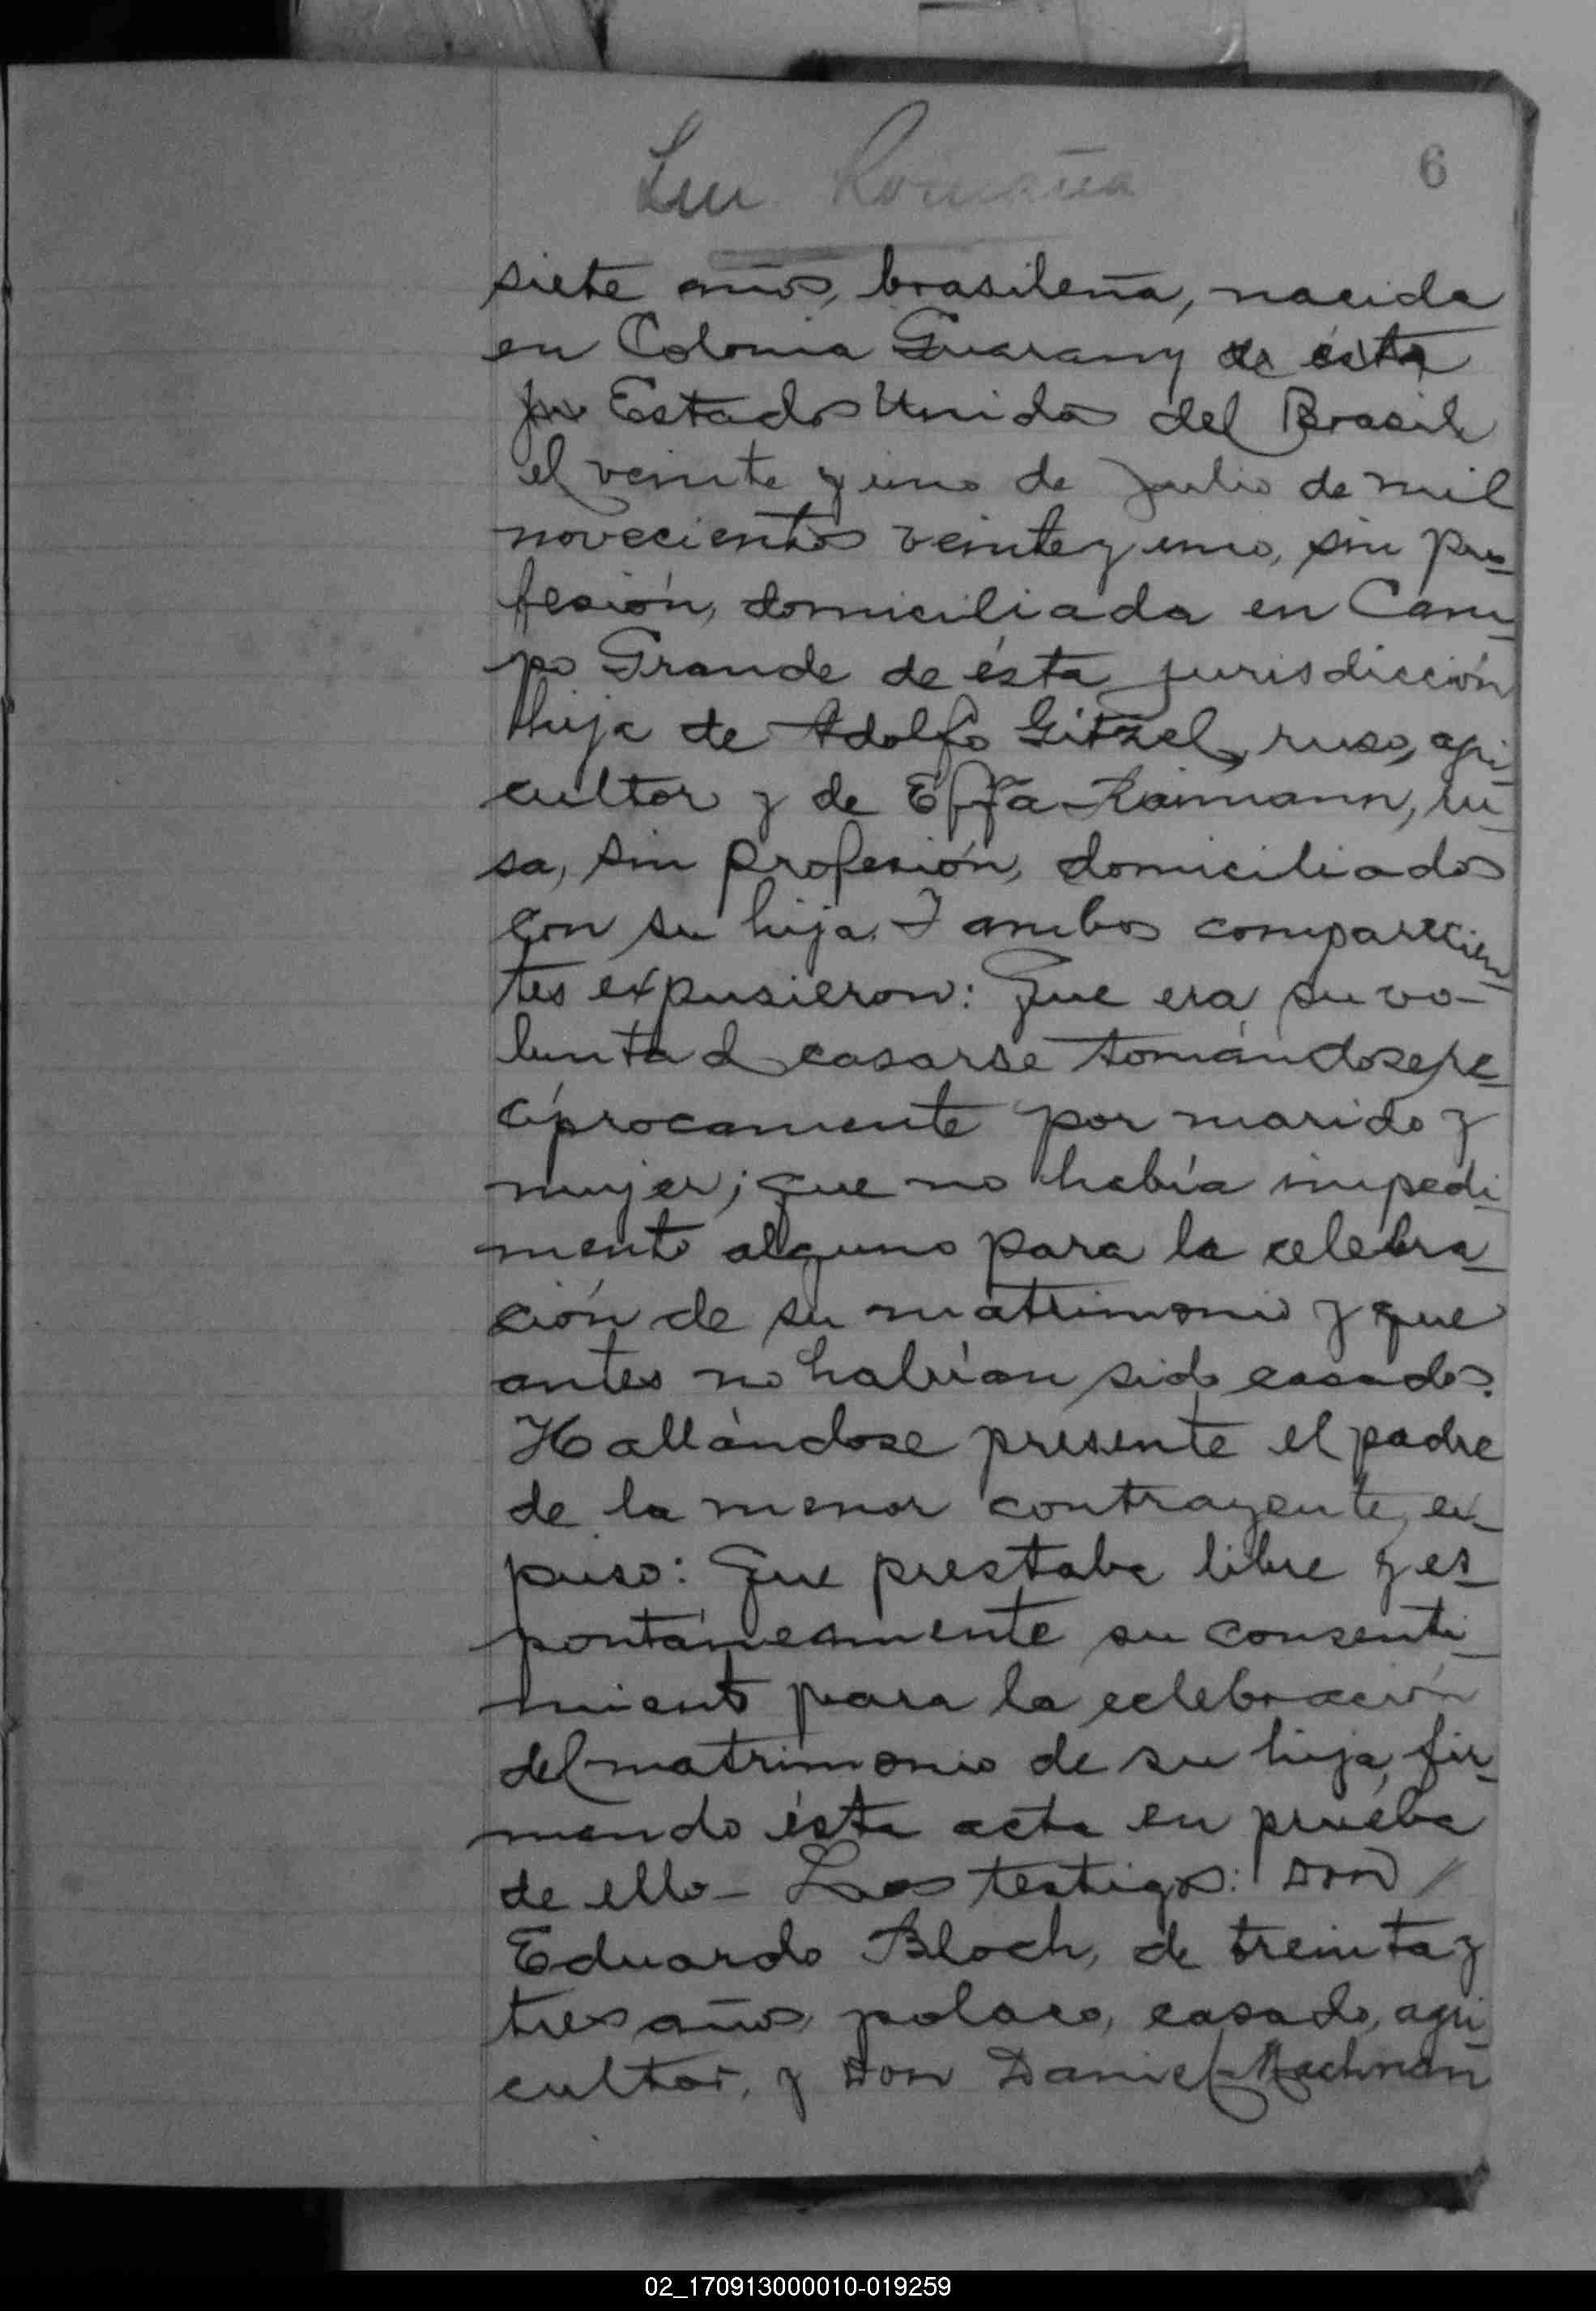 6
siete años, brasileña, nacida
en Colonia Guarany de ésta
Estados Unidos del Brasil
el veinte y uno de Julio de mil
novecientos veinte y uno, sin pro-
fesión, domiciliada en Cam-
po Grande de ésta jurisdicción
hija de Adolfo Gitzel, ruso, agri-
cultor y de Effa Raimann, ru-
sa, sin profesión, domiciliados
con su hija. I ambos comparecien-
tes expusieron: Que era su vo-
luntad casarse tomándose re-
cíprocamente por marido y
mujer; que no había impedi-
mento alguno para la celebra-
ción de su matrimonio y que
antes no habían sido casados.
Hallándose presente el padre
de la menor contrayente, ex-
puso: Que prestaba libre y es-
pontáneamente su consenti-
miento para la celebración
del matrimonio de su hija, fir-
mando ésta acta en prueba
de ello - Los testigos: Don
Eduardo Bloch, de treinta y
tres años, polaco, casado, agri-
cultor, y Don Daniel Machman
02_170913000010-019259